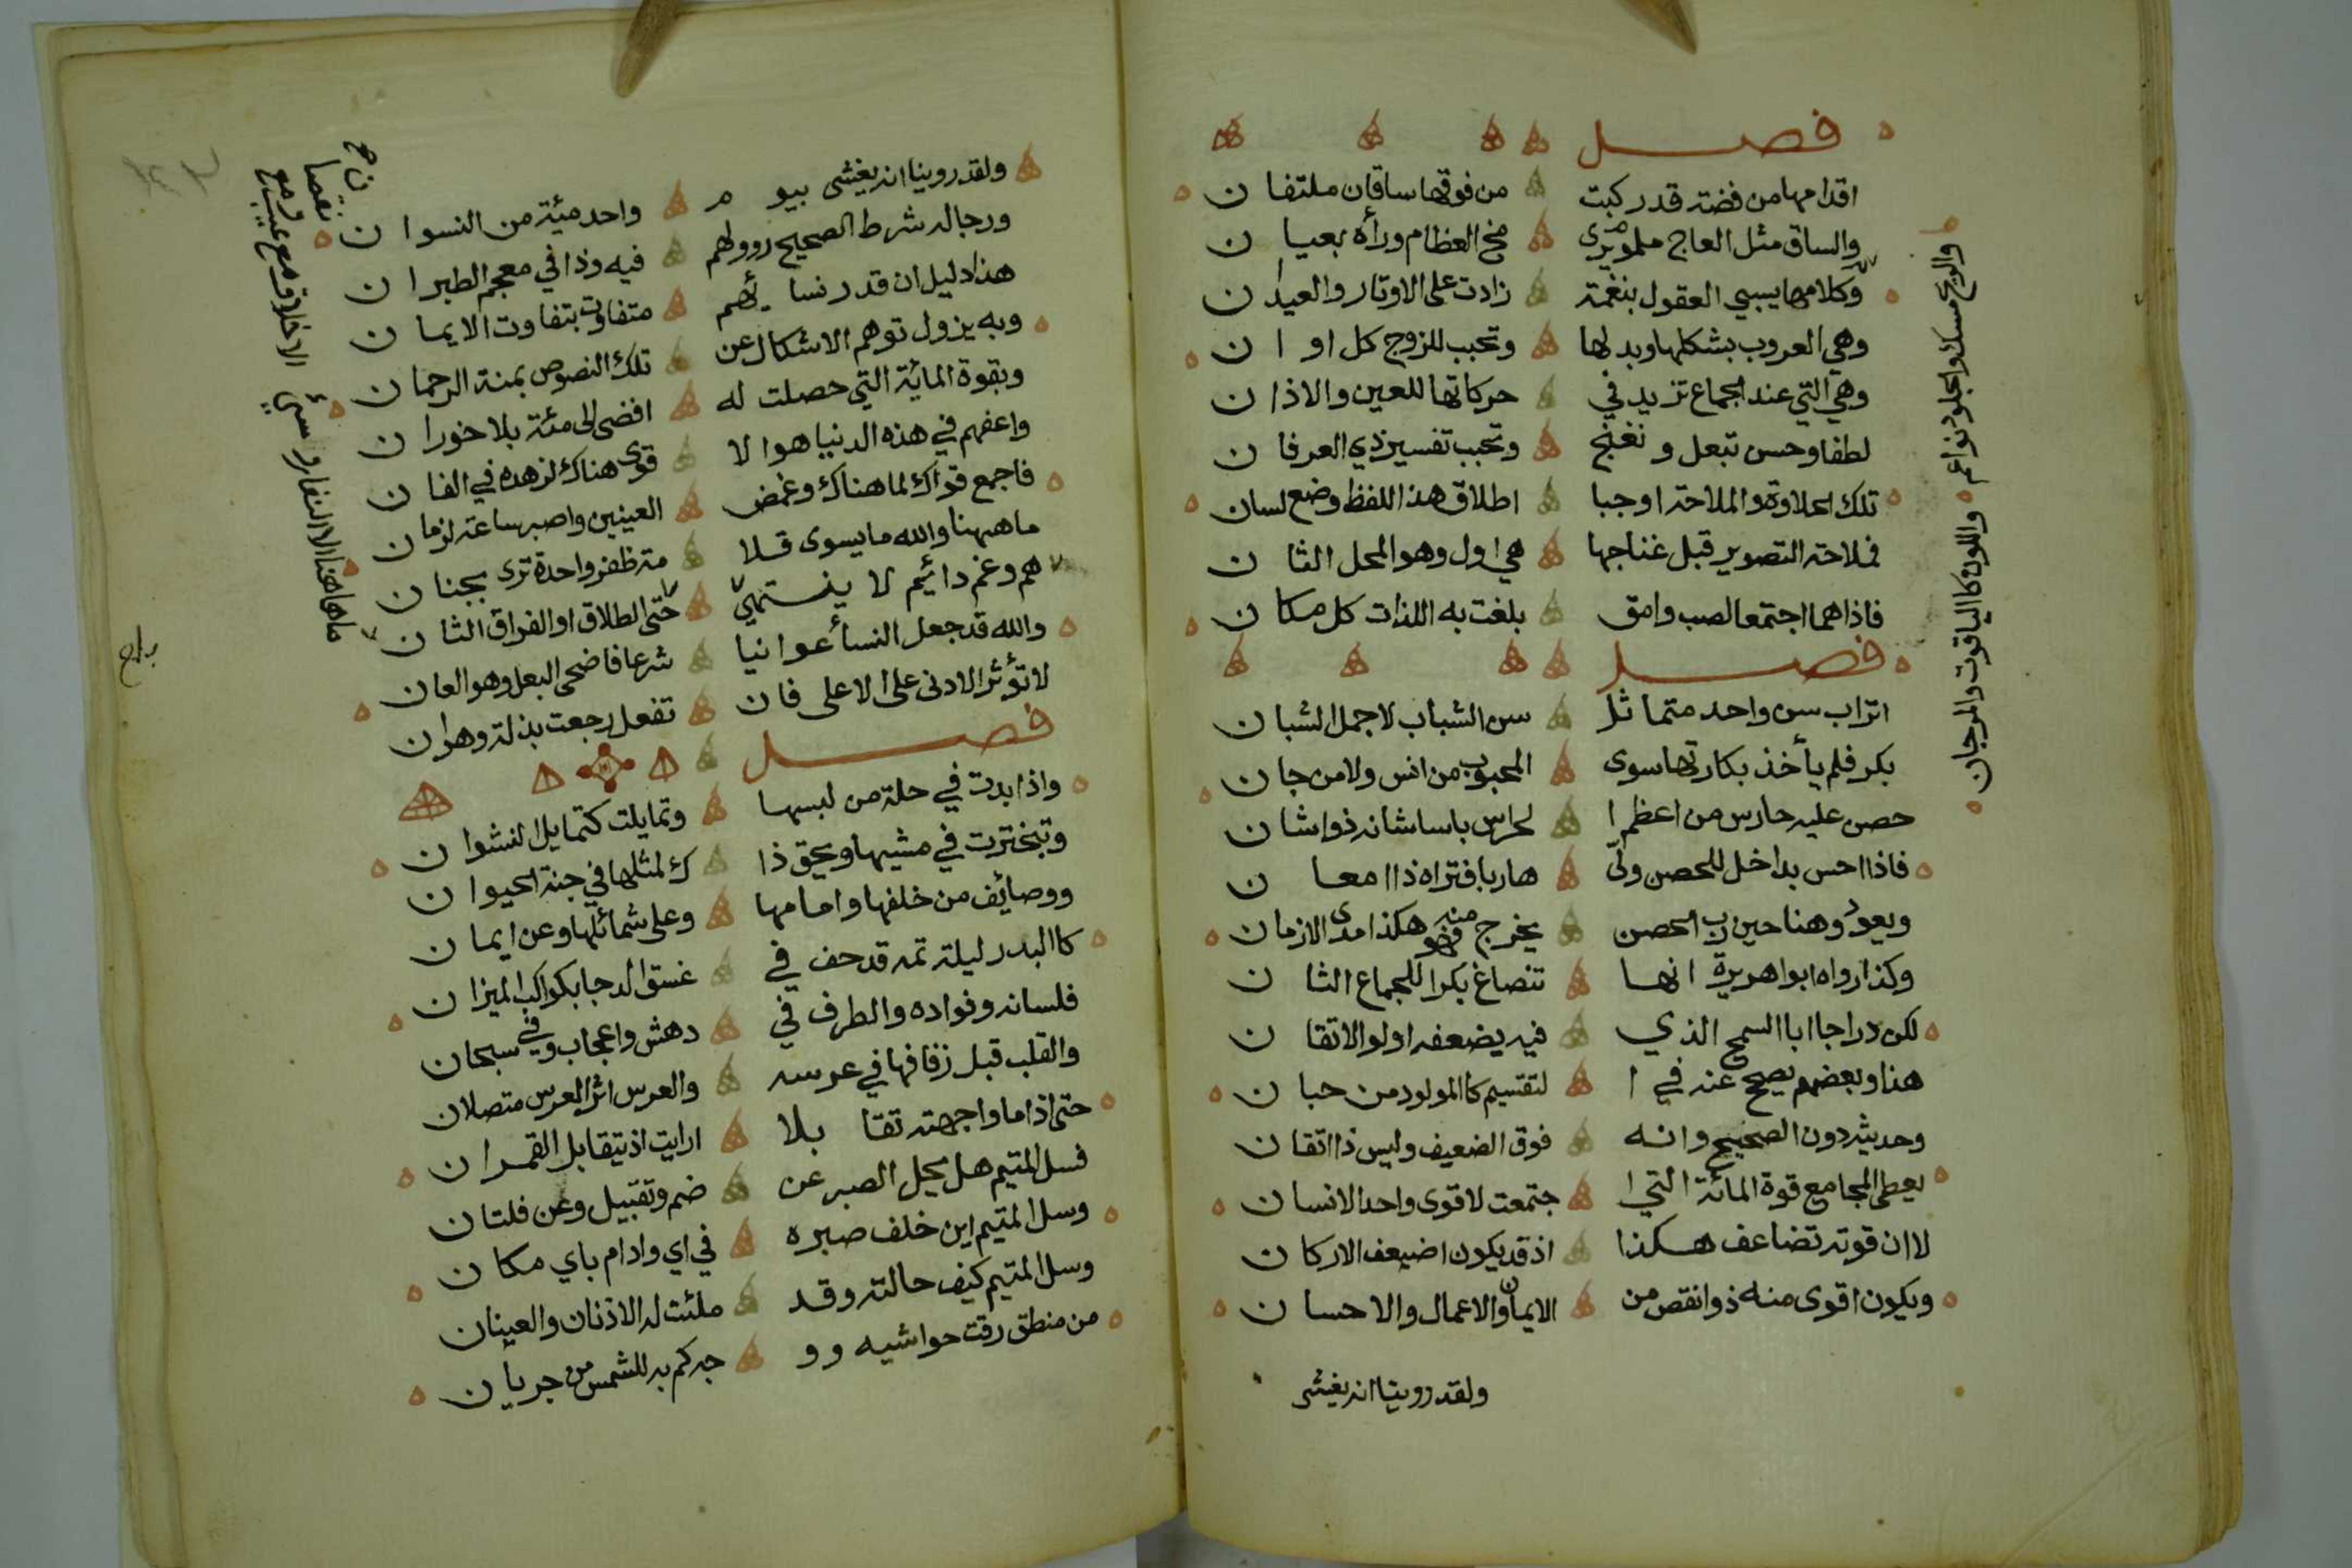 فصل
اقدامها من فضة قد ركبت من فوقها ساقان ملتفان
والساق مثل العاج ملموم يرى مخ العظام وراه بعيان
وكلامها يسبي العقول بنغمة زادت على الاوتار والعيدان
وهي العروب بشكلها وبدلها وتحبب للزوج كل اوان
وهي التي عند الجماع تزيد في حركاتها للعين والاذان
لطفا وحسن تبعل وتغنج وتحبب تفسير ذي العرفان
تلك الحلاوة والملاحة اوجبا اطلاق هذا اللفظ وضع لسان
فملاحة التصوير قبل غناجها هي اول وهو المحل الثان
فاذا هما اجتمعا لصب وامق بلغت به اللذات كل مكان
فصل
اتراب سن واحد متماثل سن الشباب لاجمل الشبان
بكر فلم يأخذ بكارتها سوى المحبوب من انس ولا من جان
حصن عليه حارس من اعظم ا لحراس باسا شانه ذو اشان
فاذا احس بداخل للحصن ولّى هاربا فتراه ذا امعان
ويعود وهنا حين رب الحصن يخرج منه فهو هكذا مدى الازمان
وكذا رواه ابوا هريرة انها تنصاغ بكرا للجماع الثان
لكن دراجا ابا السمح الذي فيه يضعفه اولوا الاتقان
هذا وبعضهم يصحح عنه في ا لتقسيم كالمولود من حبان
وحديثه دون الصحيح وانه فوق الضعيف وليس ذا اتقان
يعطى المجامع قوة المائة التي ا جتمعت لاقوى واحد الانسان
لا ان قوته تضاعف هكذا اذ قد يكون اضيعف الاركان
ويكون اقوى منه ذو انقص من الايمان والاعمال والاحسان
ولقد روينا انه يغشى
والريح مسك والجلود نواعم واللون كالياقوت والمرجان
ولقد روينا انه يغشى بيوم واحد مئية من النسوان
ورجاله شرط الصحيح رووا لهم فيه وذا في معجم الطبران
هذا دليل ان قدر نسائهم متفاوت بتفاوت الايمان
وبه يزول توهم الاشكال عن تلك النصوص بمنة الرحمان
وبقوة المائية التي حصلت له افضى الى مئة بلا خوران
واعفهم في هذه الدنيا هوا لا قوى هناك لزهده في الفان
فاجمع قواك لما هناك وغمض العينين واصبر ساعة لزمان
ما ههنا والله ما يسوى قلا مة ظفر واحدة ترى بجنان
هم وغم دائيم لا ينتهي حتى الطلاق او الفراق الثان
والله قد جعل النسأ عوانيا شرعا فاضحى البعل وهو العان
لا تؤثر الادنى على الاعلى فان تفعل رجعت بذلة وهوان
فصل
واذا بدت في حلة من لبسها وتمايلت كتمايل النشوان
وتبخترت في مشيها ويحق ذا ك لمثلها في جنة الحيوان
ووصائيف من خلفها وامامها وعلى شمائلها وعن ايمان
كالبدر ليلة تمه قد حف في غسق الدجا بكواكب الميزان
فلسانه وفواده والطرف في دهش واعجاب وفي سبحان
والقلب قبل زفافها في عرسه والعرس اثر العرس متصلان
حتى اذا ما واجهته تقابلا ارايت اذ يتقابل القمران
فسل المتيم هل يحل الصبر عن ضم وتقبيل وعن فلتان
وسل المتيم اين خلف صبره في اي واد ام باي مكان
وسل المتيم كيف حالته وقد ملئت له الاذنان والعينان
من منطق رقت حواشيه وو جه كم به للشمس من جريان
ما هاهنا الا النغار وسيئ الاخلاق مع عيب ومع نقصان